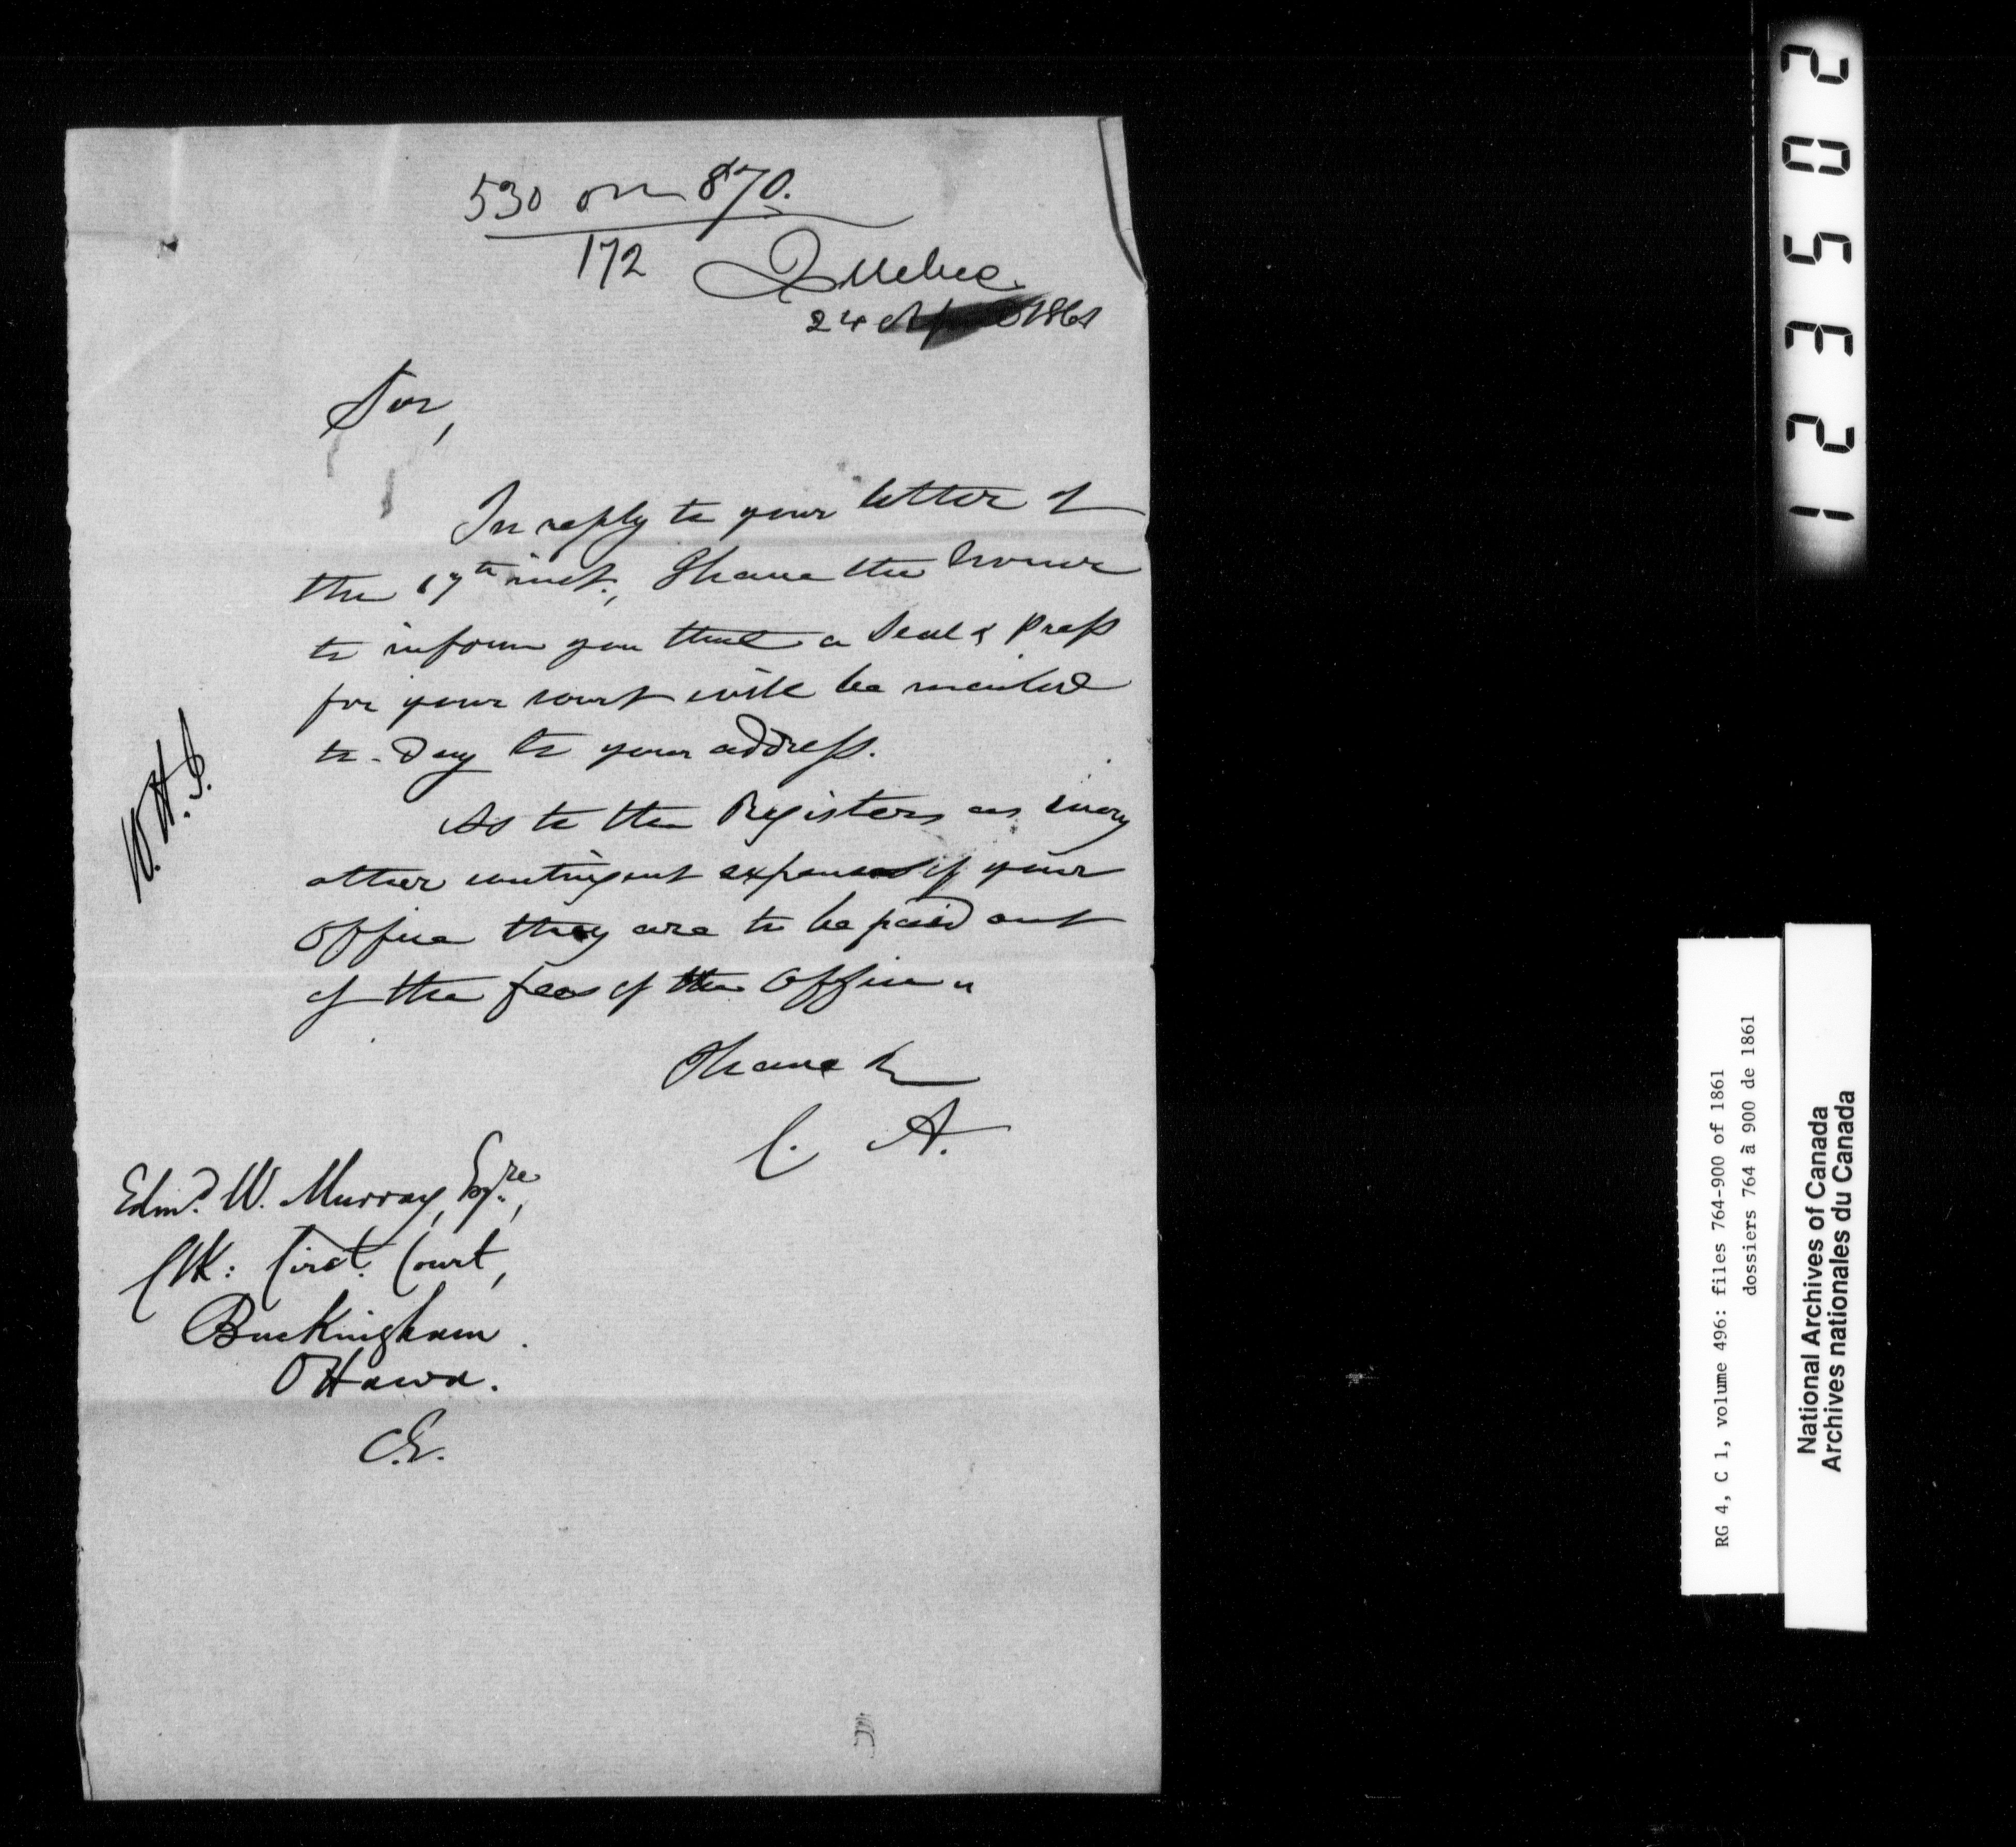 530 on 870.
172
Quebec
24 April 1861
Sir,
In reply to your letter of
the 17th inst., I have the honour
to inform you that a Seal & Press
for your court will be mailed
to-day to your address.
As to the Registers as every
other contingent expenses of your
Office they are to be paid out
of the fees of the Office
I have &c
C. A.
W.H.J.
Edmd. W. Murray, Esqre.,
Clk: Circt. Court,
Buckingham.
Ottawa.
C.E.
12350 2
RG 4, C 1, volume 496: files 764-900 of 1861
dossiers 764 à 900 de 1861
National Archives of Canada
Archives nationales du Canada